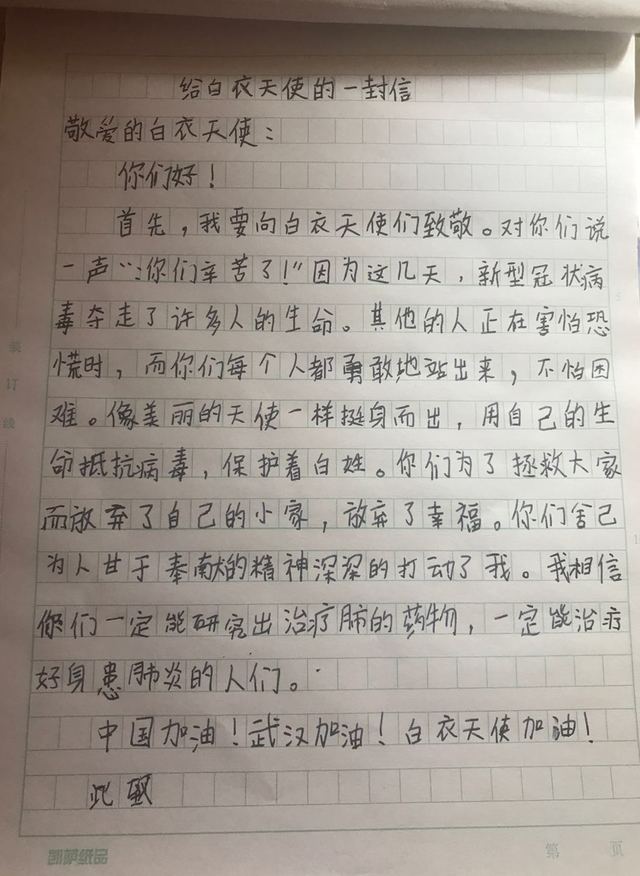 给白衣天使的一封信
敬爱的白衣天使：
你们好！
首先，我要向白衣天使们致敬。对你们说
一声“：你们辛苦了！”因为这几天，新型冠状病
毒夺走了许多人的生命。其他的人正在害怕恐
慌时，而你们每个人都勇敢地站出来，不怕困
难。像美丽的天使一样挺身而出，用自己的生
命抵抗病毒，保护着白姓。你们为了拯救大家
而放弃了自己的小家，放弃了幸福。你们舍己
为人甘于奉献的精神深深的打动了我。我相信
你们一定能研究出治疗肺的药物，一定能治疗
好身患肺炎的人们。
中国加油！武汉加油！白衣天使加油！
此致
装
订
线
第 页